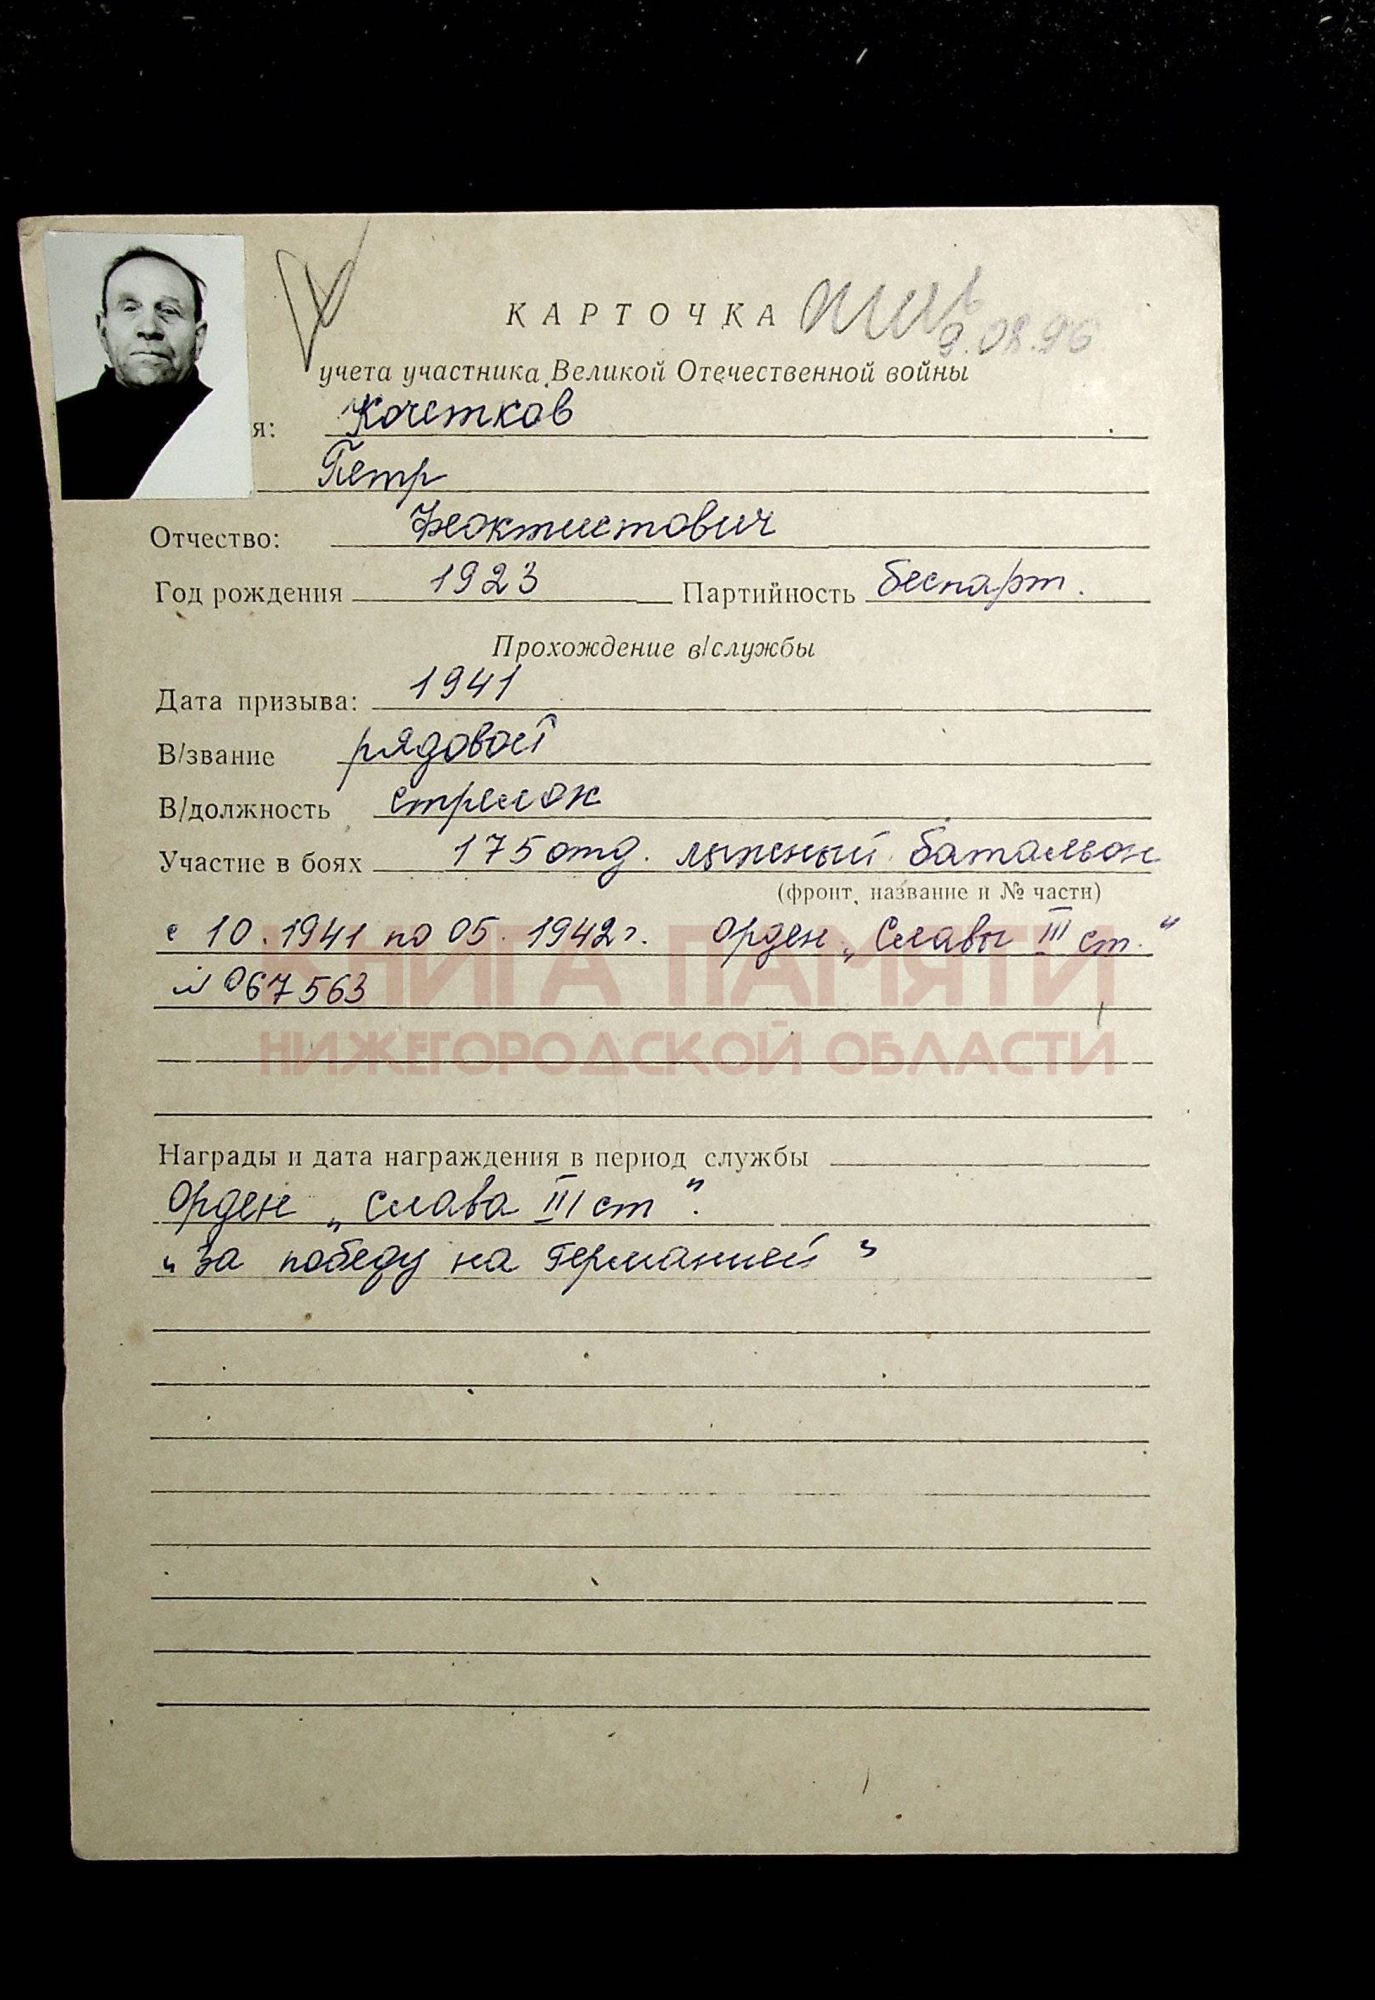 КАРТОЧКА
9.08.96
учета участника Великой Отечественной войны
я: Кочетков
Петр
Отчество: Феоктистович
Год рождения 1923 Партийность беспарт.
Прохождение в/службы
Дата призыва: 1941
В/звание рядовой
В/должность стрелок
Участие в боях 175 отд. лыжный батальон
(фронт, название и № части)
с 10.1941 по 05.1942 г. Орден „Славы III ст."
№ 067563
КНИГА ПАМЯТИ
НИЖЕГОРОДСКОЙ ОБЛАСТИ
Награды и дата награждения в период службы
Орден „Слава III ст".
„За победу на Германией"